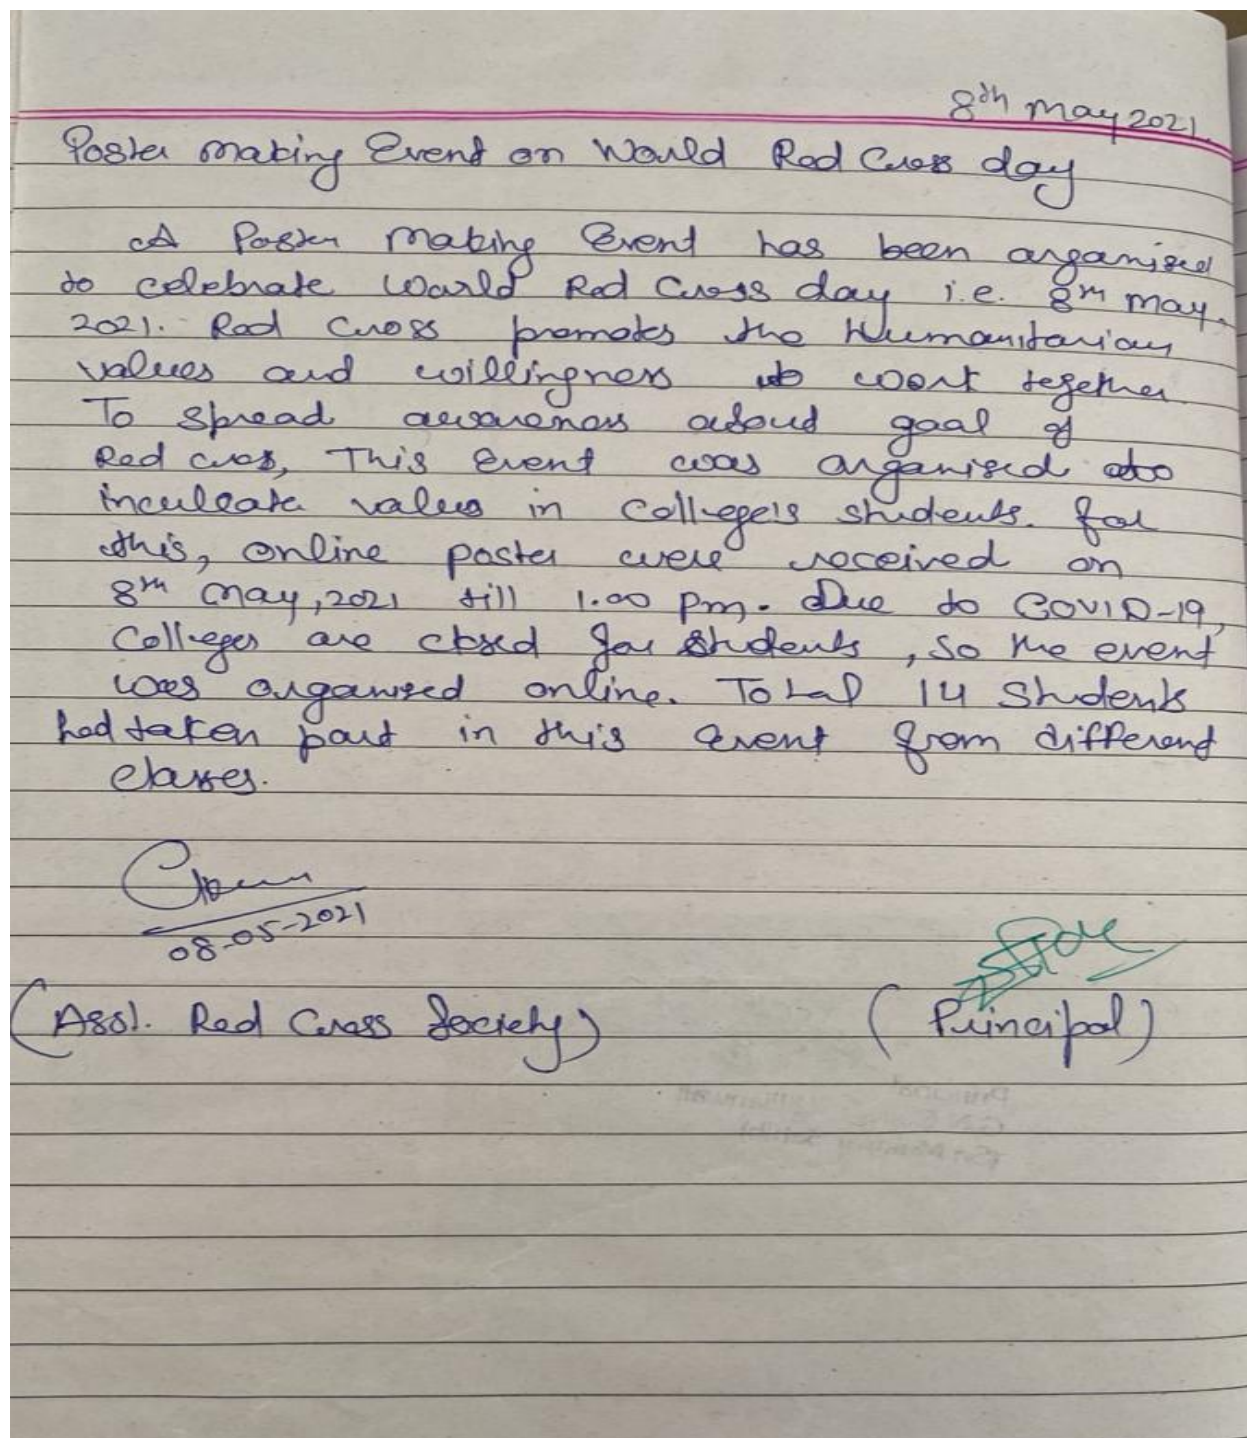 8th May 2021
Poster Making Event on World Red Cross day
A Poster Making Event has been organised
to celebrate World Red Cross day i.e. 8th May
2021. Red Cross promotes the Humanitarian
values and willingness to work together.
To spread awareness about goal of
Red cross, This Event was organised to
inculcate values in College's students. For
this, online poster were received on
8th May, 2021 till 1.00 pm. Due to COVID-19,
Colleges are closed for students, so the event
was organised online. Total 14 Students
had taken part in this event from different
classes.
08-05-2021
(Asst. Red Cross Society)
(Principal)